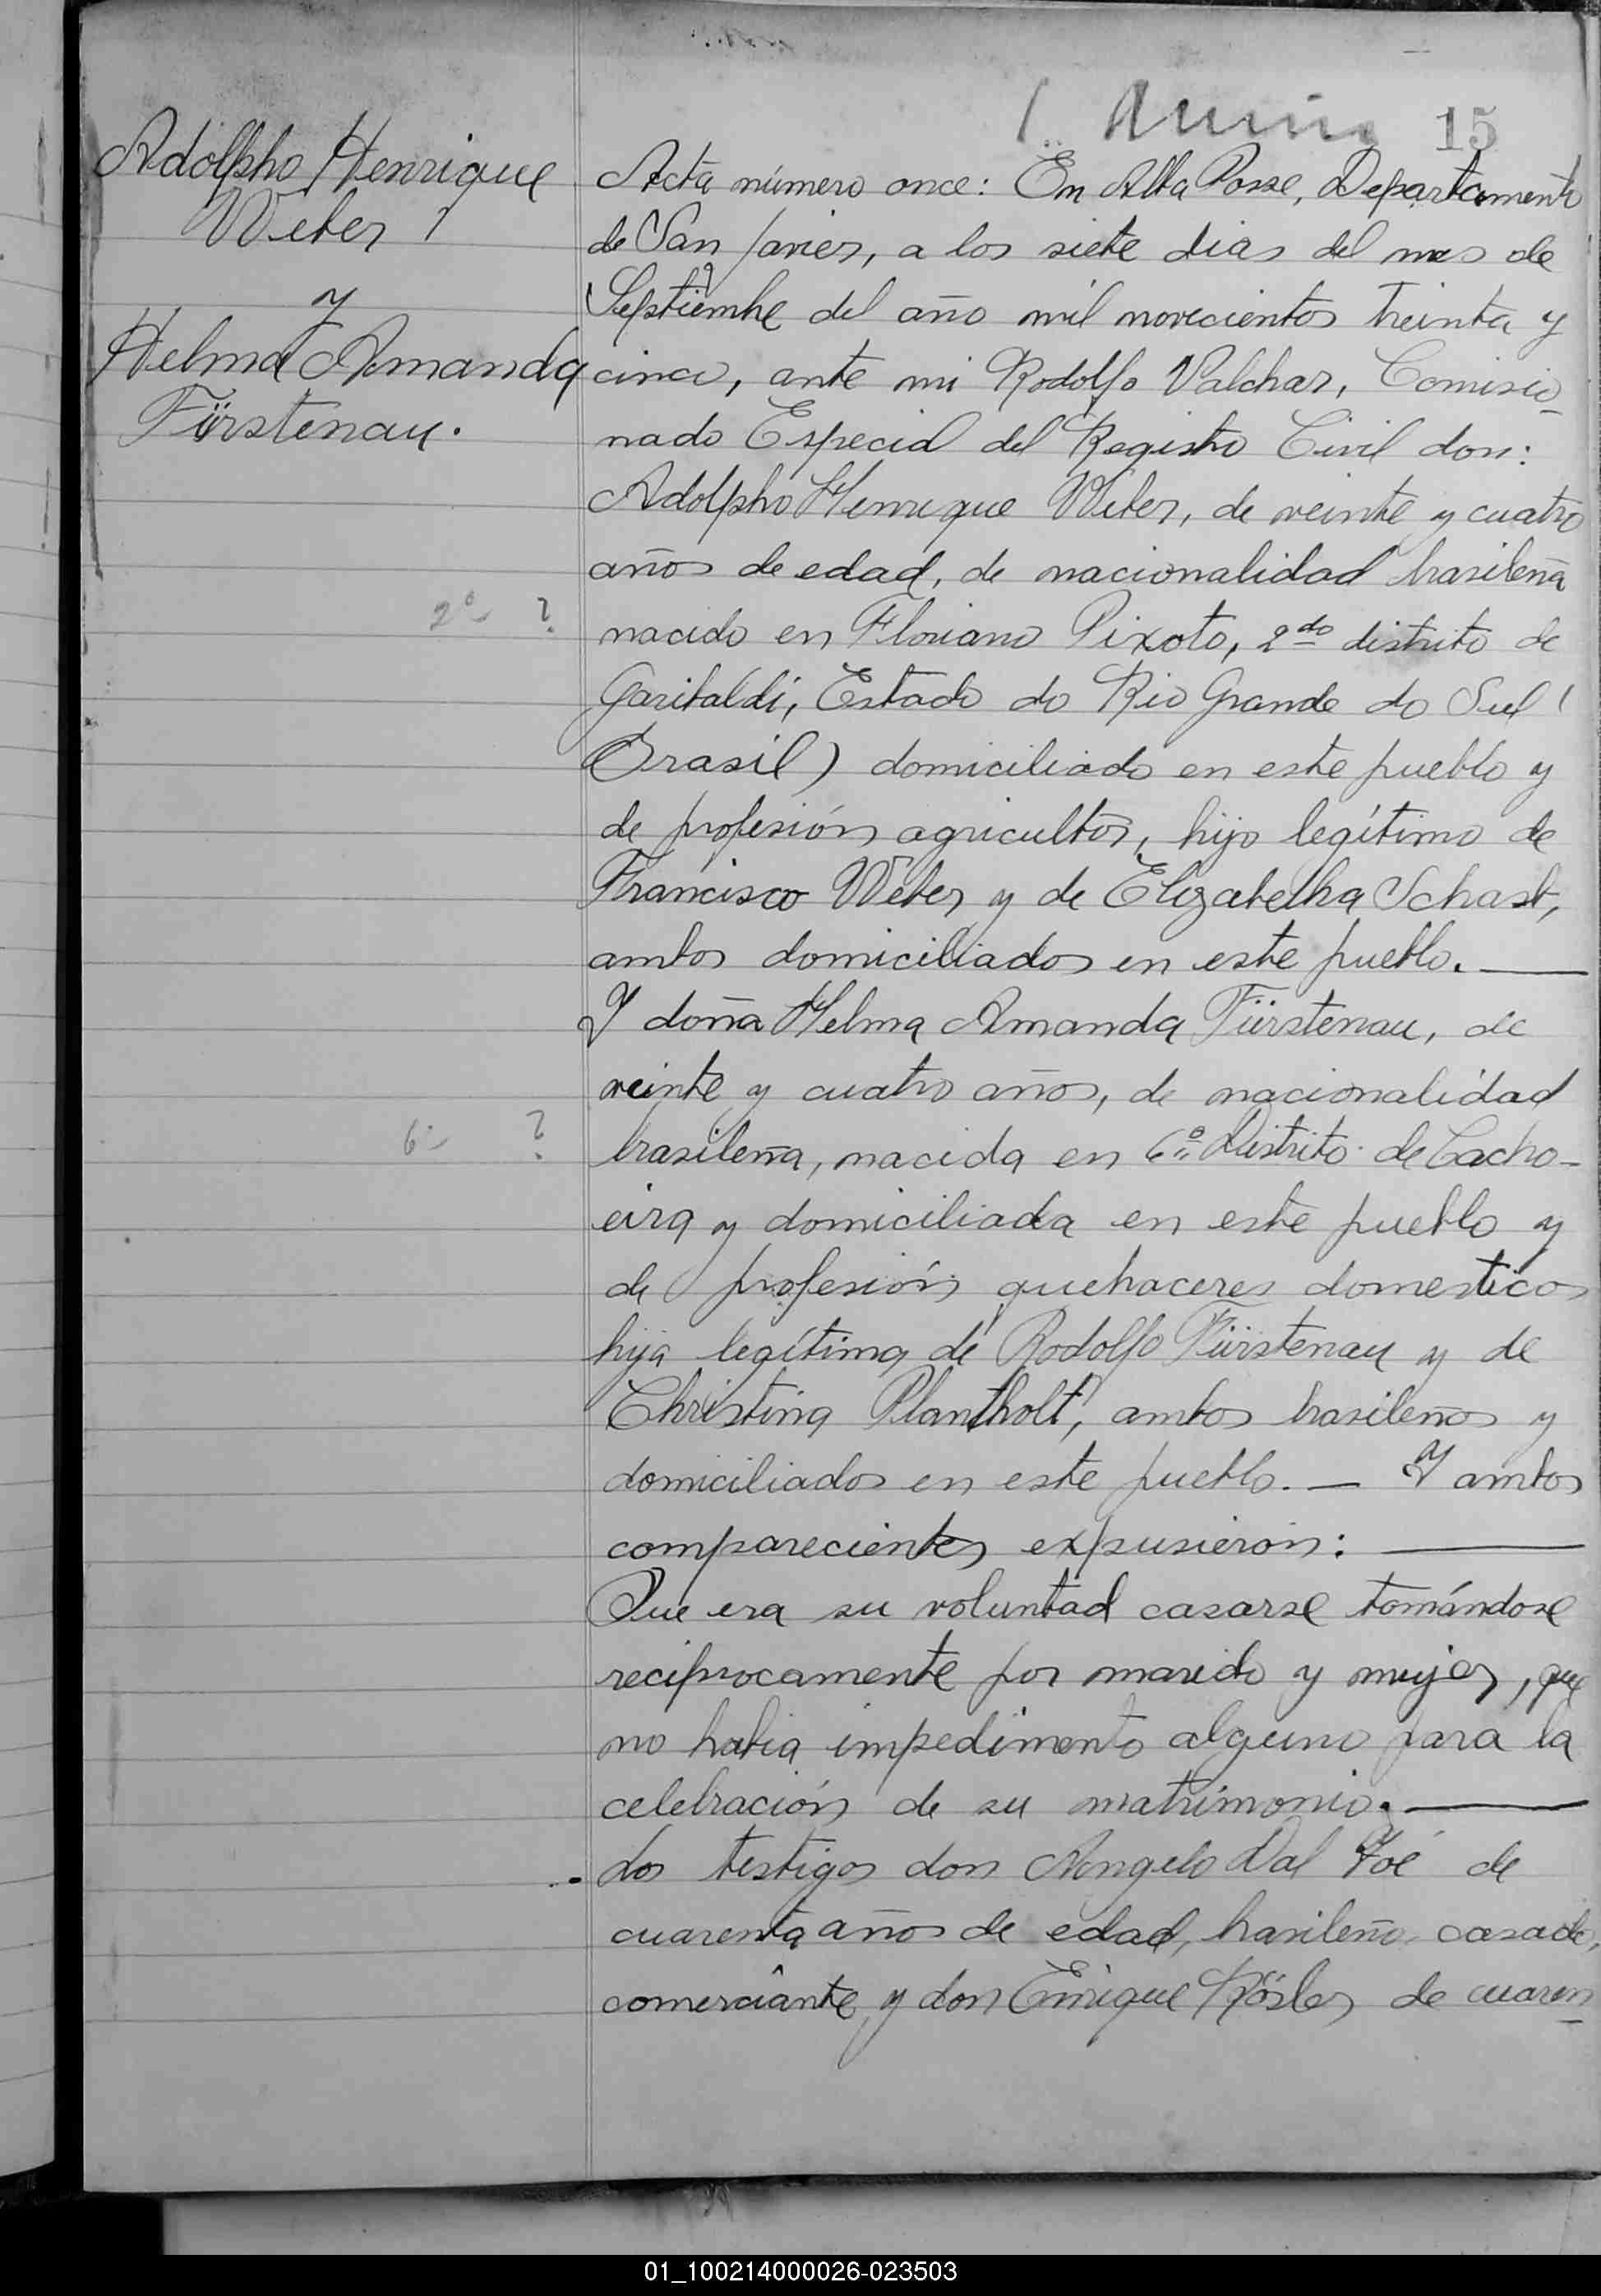 15
Adolpho Henrique
Weber
y
Helma Amanda
Fürstenau.
Acta número once: En Alba Posse, Departamento
de San Javier, a los siete dias del mes de
Septiembre del año mil novecientos treinta y
cinco, ante mi Rodolfo Valchar, Comisio_
nado Especial del Registro Civil don:
Adolpho Henrique Weber, de veinte y cuatro
años de edad, de nacionalidad brasileña
2º ?
nacido en Floriano Pixoto, 2do distrito de
Garibaldi, Estado do Rio Grande do Sul (
Brasil) domiciliado en este pueblo y
de profesión agricultor, hijo legítimo de
Francisco Weber y de Elizabetha Schast,
ambos domiciliados en este pueblo.
Y doña Helma Amanda Fürstenau, de
veinte y cuatro años, de nacionalidad
6º ?
brasileña, nacida en 6º Distrito de Cacho-
eira y domiciliada en este pueblo y
de profesión quehaceres domesticos
hija legítima de Rodolfo Fürstenau y de
Christina Plantholt, ambos brasileños y
domiciliados en este pueblo. — Y ambos
comparecientes expusieron:
Que era su voluntad casarse tomándose
reciprocamente por marido y mujer, que
no habia impedimento alguno para la
celebración de su matrimonio.
Los testigos don Angelo Dal Foé de
cuarenta años de edad, brasileño casado,
comerciante y don Enrique Rösler de cuaren_
01_100214000026-023503